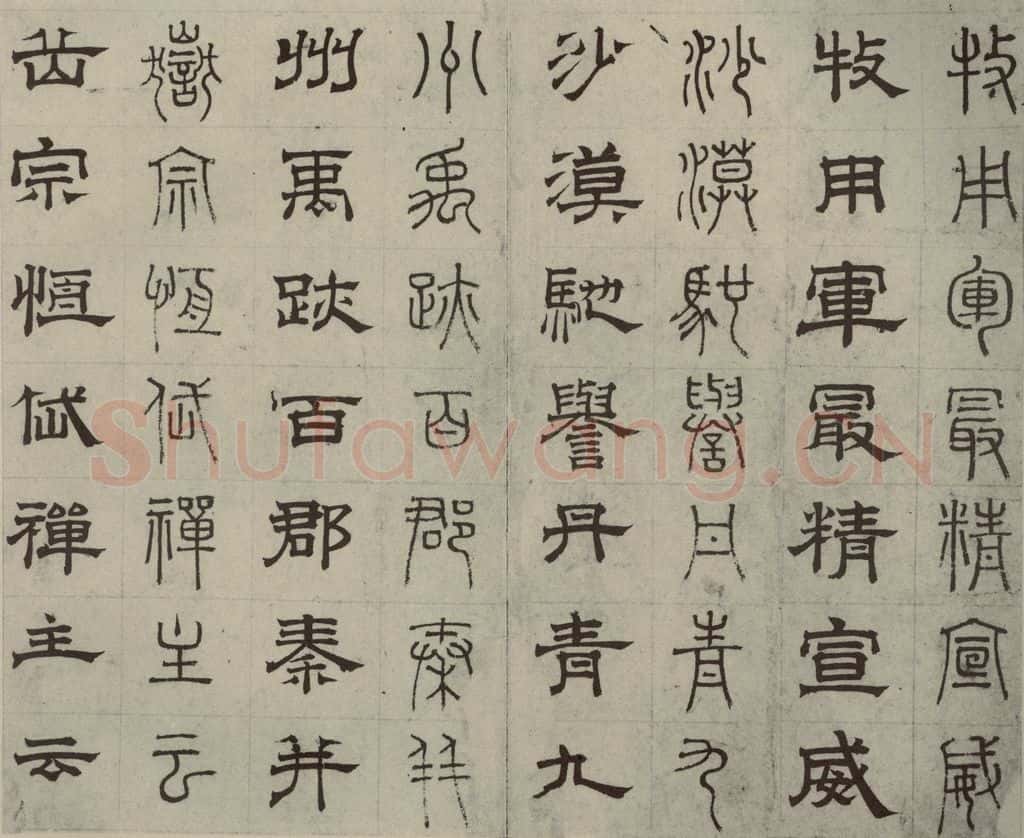 牧用軍最精宣威
牧用軍最精宣威
沙漠馳譽丹青九
沙漠馳譽丹青九
州禹跡百郡秦并
州禹跡百郡秦并
嶽宗恒岱禪主云
岳宗恒岱禪主云
Shufawang.CN